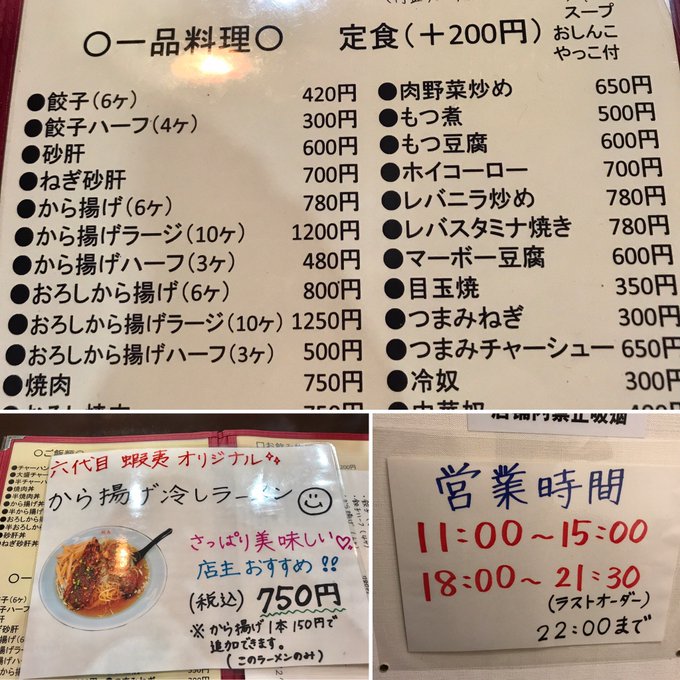 スープ
○一品料理○ 定食(＋200円) おしんこ
やっこ付
●餃子(6ヶ) 420円
●餃子ハーフ(4ヶ) 300円
●砂肝 600円
●ねぎ砂肝 700円
●から揚げ(6ヶ) 780円
●から揚げラージ(10ヶ) 1200円
●から揚げハーフ(3ヶ) 480円
●おろしから揚げ(6ヶ) 800円
●おろしから揚げラージ(10ヶ) 1250円
●おろしから揚げハーフ(3ヶ) 500円
●焼肉 750円
●肉野菜炒め 650円
●もつ煮 500円
●もつ豆腐 600円
●ホイコーロー 700円
●レバニラ炒め 780円
●レバスタミナ焼き 780円
●マーボー豆腐 600円
●目玉焼 350円
●つまみねぎ 300円
●つまみチャーシュー 650円
●冷奴 300円
○ご飯類○
●チャーハン
●大盛チャー
●半チャーハン
●焼肉丼
●半焼肉丼
●から揚げ丼
●砂肝丼
●ねぎ砂肝丼
○一
●餃子(6ヶ)
●餃子ハーフ
●砂肝
●ねぎ砂肝
●から揚げ
六代目 蝦夷 オリジナル
から揚げ冷しラーメン
さっぱり美味しい♡
店主おすすめ!!
(税込) 750円
※から揚げ1本150円で
追加できます。
(このラーメンのみ)
店舗内禁止喫煙
営業時間
11:00～15:00
18:00～21:30
(ラストオーダー)
22:00まで